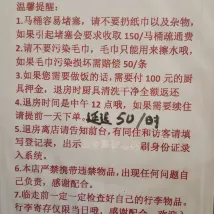 温馨提醒:
1.马桶容易堵塞，请不要扔纸巾以及杂物，
如果引起堵塞会要求收取 150/马桶疏通费
2.请不要污染毛巾，毛巾只能用来擦水哦，
如毛巾污染损坏需赔偿 50/条
3.如果您需要做饭的话，需要付 100 元的厨
具押金，退房时厨具清洗干净全额返还
4.退房时间是中午 12 点哦，如果需要续住
请提前一天下单. 延迟 50/时
5.退房离店请告知前台，有同住和访客请填
写登记表，出示 刷身份证录
入系统。
6.本店严禁携带违禁物品，出现任何问题自
己负责，感谢配合。
7.临走前一定一定检查好自己的行李物品，
行李寄存仅限当日哦，感谢配合，欢迎入